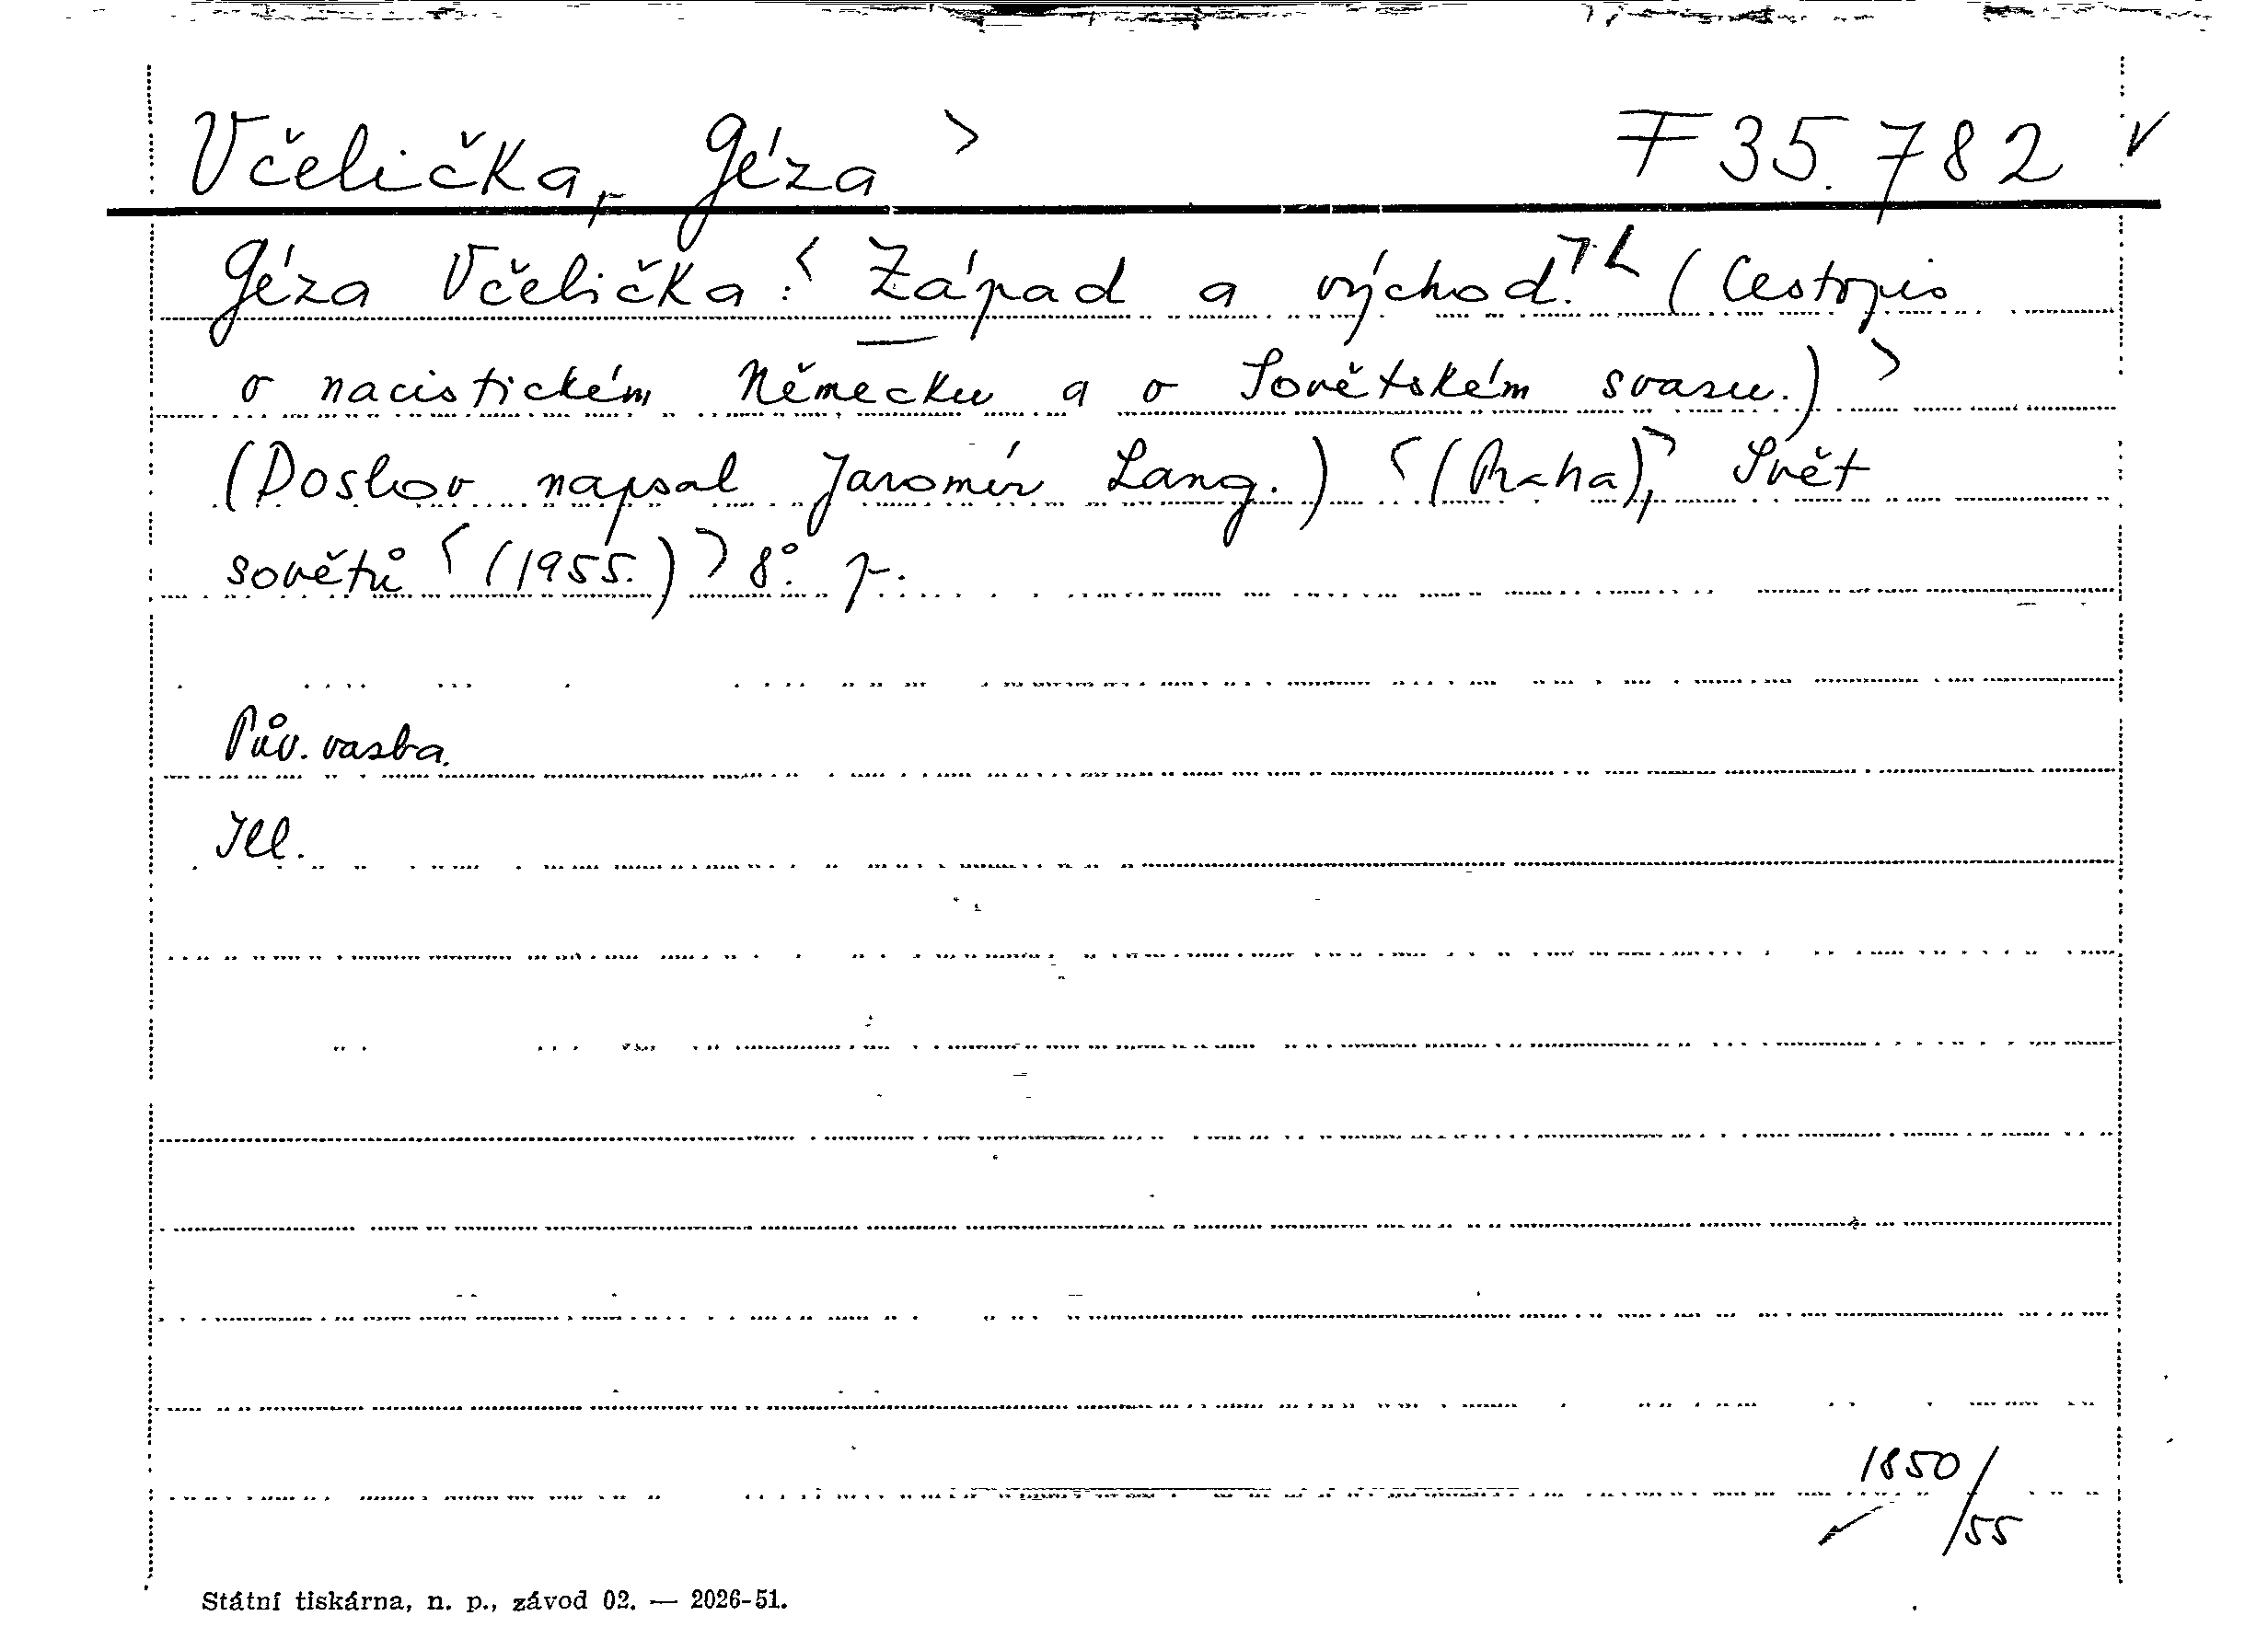 Včelička, Géza > F 35.782 v
Géza Včelička: < Západ a východ. > < (Cestopis
o nacistickém Německu a o Sovětském svazu.) >
(Doslov napsal Jaromír Lang.) < (Praha), > Svět
sovětů < (1955.) > 8°. p.
Pův. vazba.
Ill.
1850/55
Státní tiskárna, n. p., závod 02. — 2026-51.